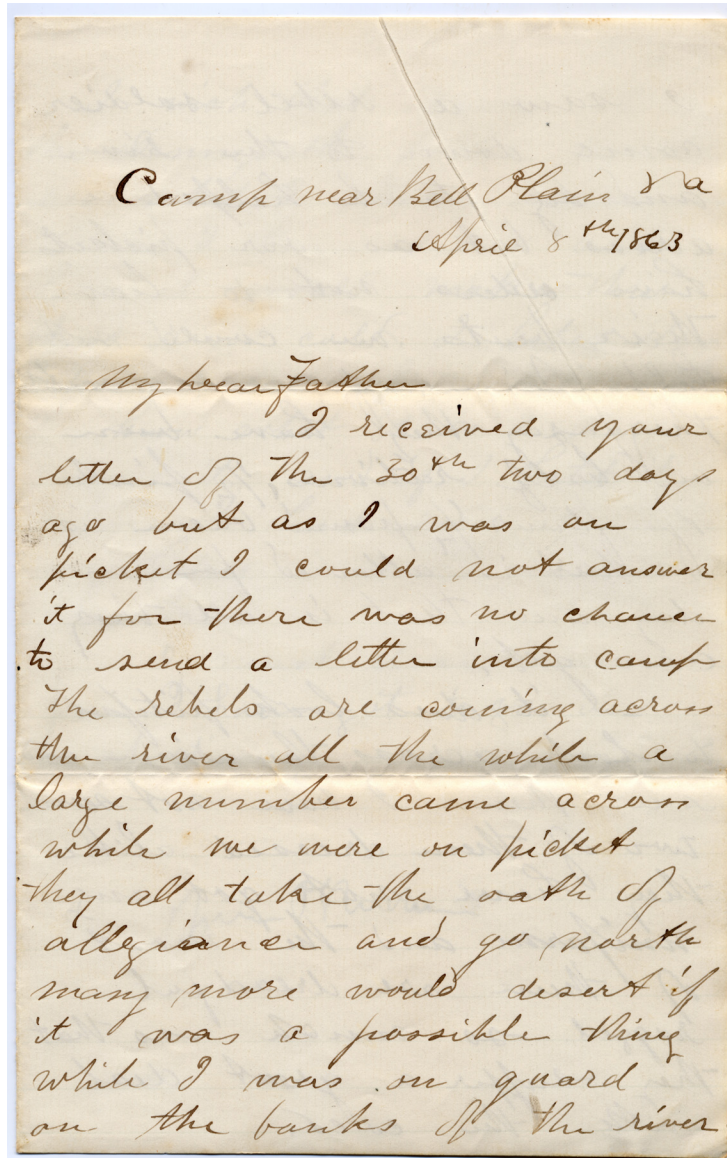 Camp near Bell Plain Va
April 8th 1863
My Dear Father
I received your
letter of the 30th two days
ago but as I was on
picket I could not answer
it for there was no chance
to send a letter into camp
The rebels are coming across
the river all the while a
large number came across
while we were on picket
they all take the oath of
allegiance and go north
many more would desert if
it was a possible thing
while I was on guard
on the banks of the river